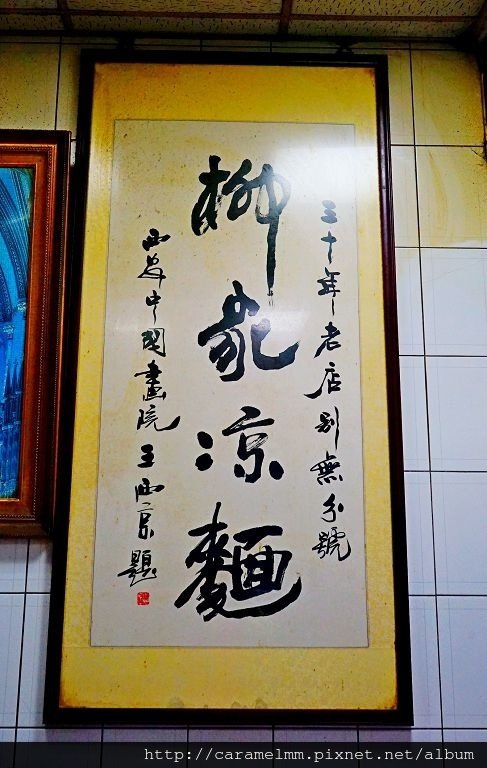 三十年老店别無分號
柳家凉麵
西安中國畫院王西京題
http://caramelmm.pixnet.net/album